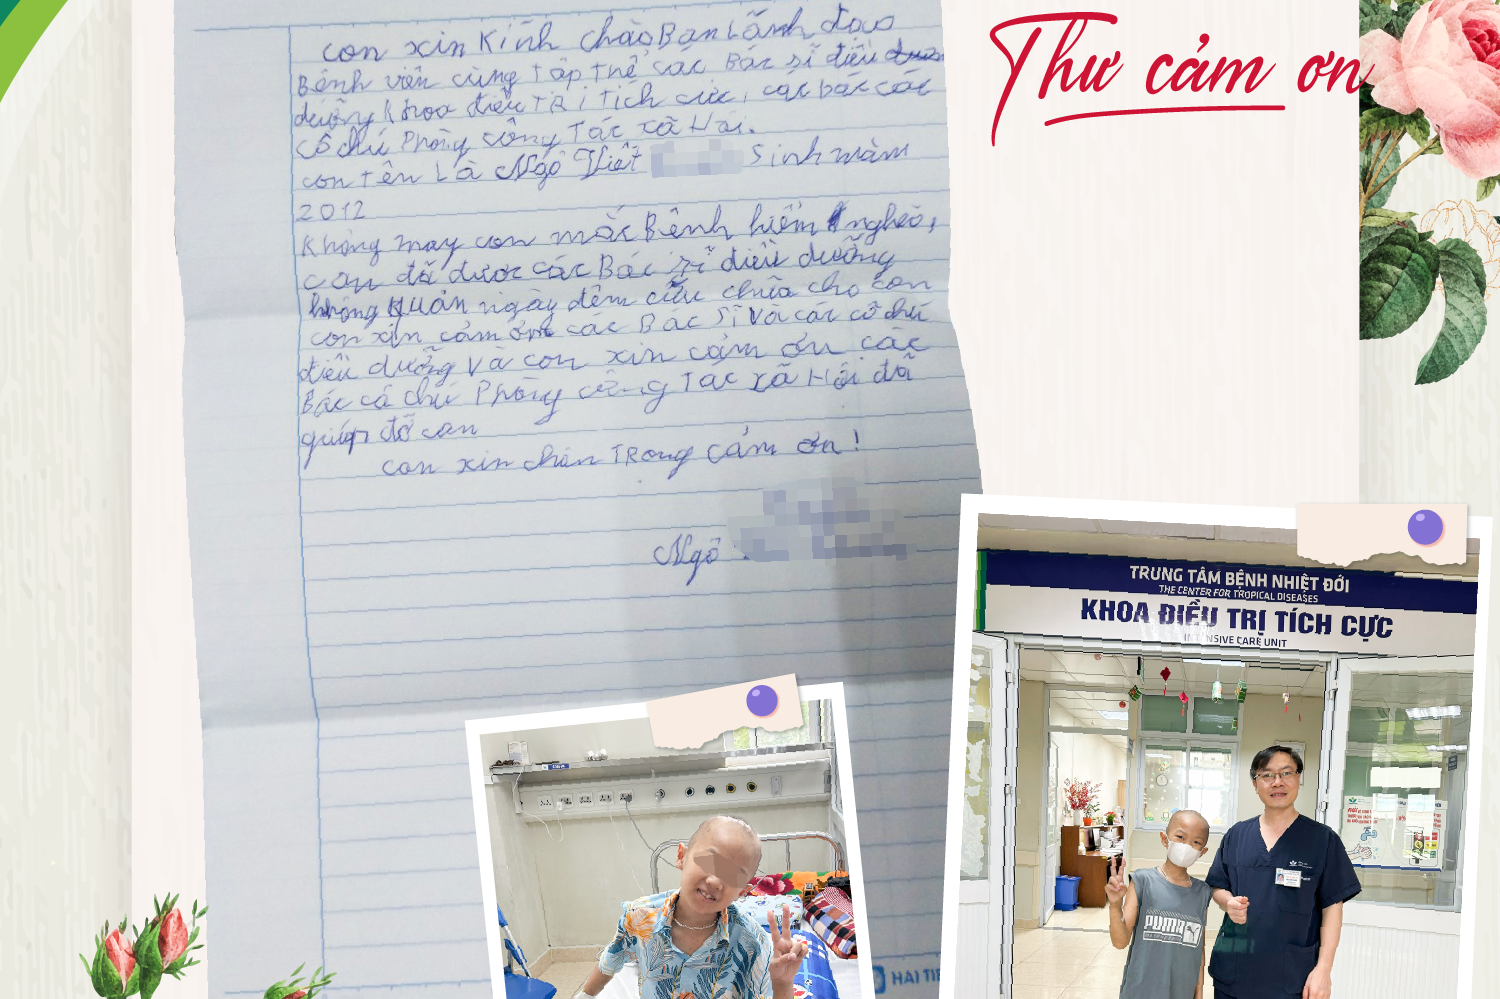 Thư cảm ơn
con xin Kính chào Ban Lãnh đạo
Bệnh viện cùng Tập Thể các Bác sĩ điều
dưỡng Khoa điều TRị Tích cực, các bác các
cô chú Phòng công Tác xã Hội.
con tên Là Ngô Viết Sinh năm
2012
Không may con mắc Bệnh hiểm nghèo,
con đã được các Bác sĩ điều dưỡng
không quản ngày đêm cứu chữa cho con
con xin cảm ơn các Bác sĩ và các cô chú
điều dưỡng và con xin cảm ơn các
Bác cô chú Phòng công Tác xã Hội đã
giúp đỡ con
con xin chân TRọng cảm ơn!
Ngô
TRUNG TÂM BỆNH NHIỆT ĐỚI
THE CENTER FOR TROPICAL DISEASES
KHOA ĐIỀU TRỊ TÍCH CỰC
INTENSIVE CARE UNIT
PUMA
HẢI TIẾ